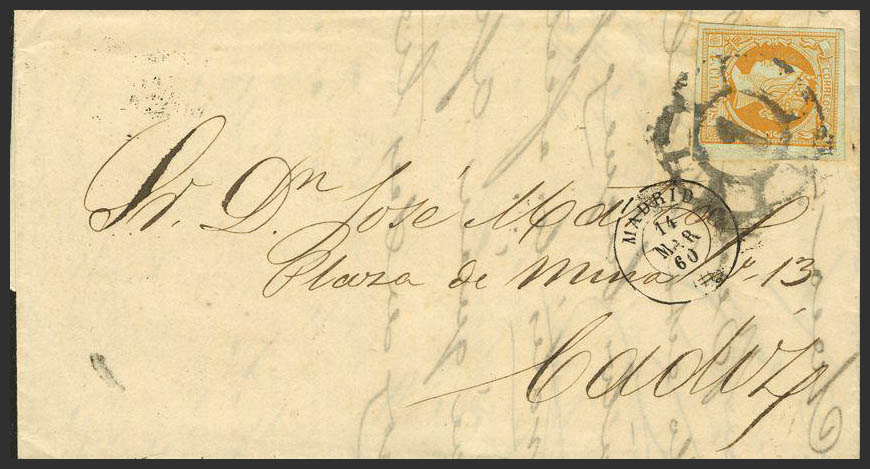 CORREOS
Sr. Dn José
Plaza de Mina No. 13
Cadiz
MADRID
14
MAR
60